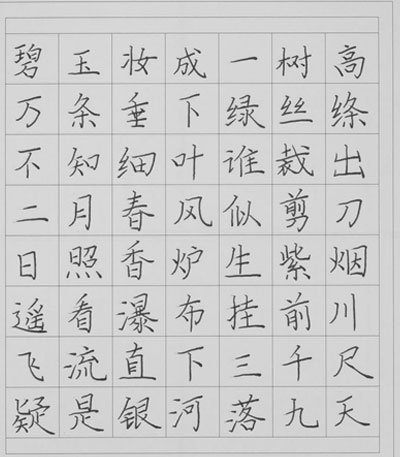 碧玉妆成一树高
万条垂下绿丝绦
不知细叶谁裁出
二月春风似剪刀
日照香炉生紫烟
遥看瀑布挂前川
飞流直下三千尺
疑是银河落九天